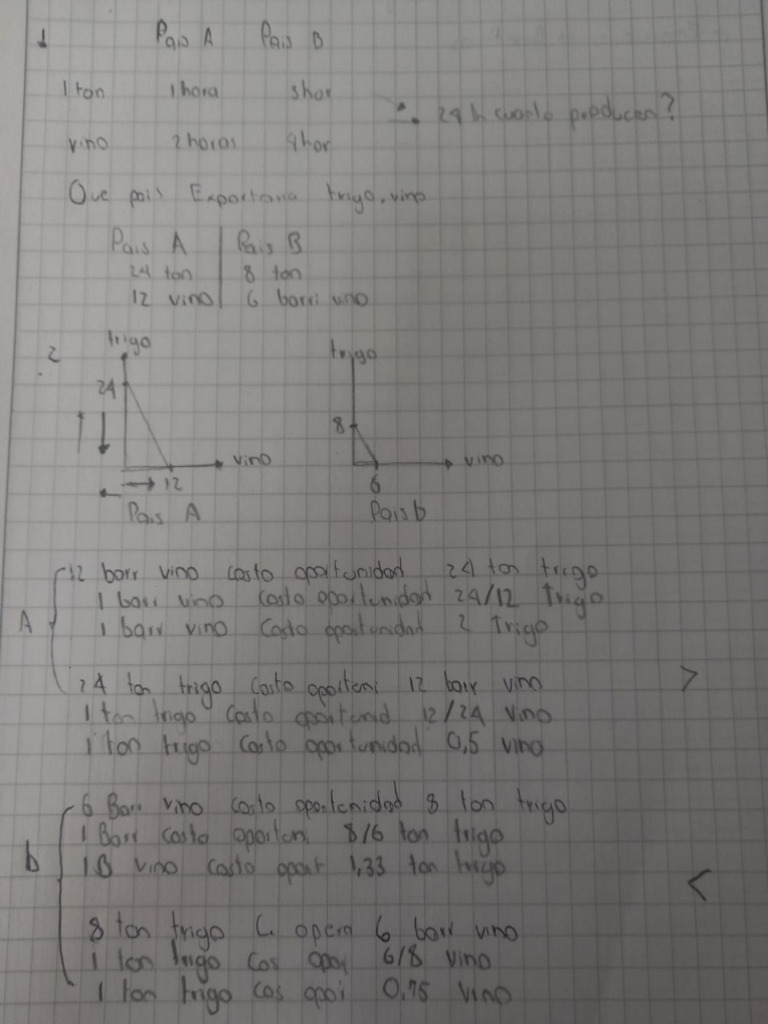 1 Pais A Pais B
1 ton 1 hora 3 hor
∴ 24 h cuanto producen?
vino 2 horas 4 hor
Que pais Exportaria trigo, vino
Pais A Pais B
24 ton 8 ton
12 vino 6 barri vino
2. trigo trigo
24
8
vino vino
12 6
Pais A Pais b
12 barr vino costo oportunidad 24 ton trigo
1 barr vino costo oportunidad 24/12 trigo
A 1 barr vino costo oportunidad 2 trigo
24 ton trigo costo oporteni 12 barr vino >
1 ton trigo costo oportunid 12/24 vino
1 ton trigo costo oportunidad 0,5 vino
6 Barr vino costo oportenidad 8 ton trigo
1 Barr costo oporten. 8/6 ton trigo
b 1B vino costo oport 1,33 ton trigo
<
8 ton trigo C. opera 6 barr vino
1 ton trigo cos opor 6/8 vino
1 ton trigo cos opoi 0,75 vino